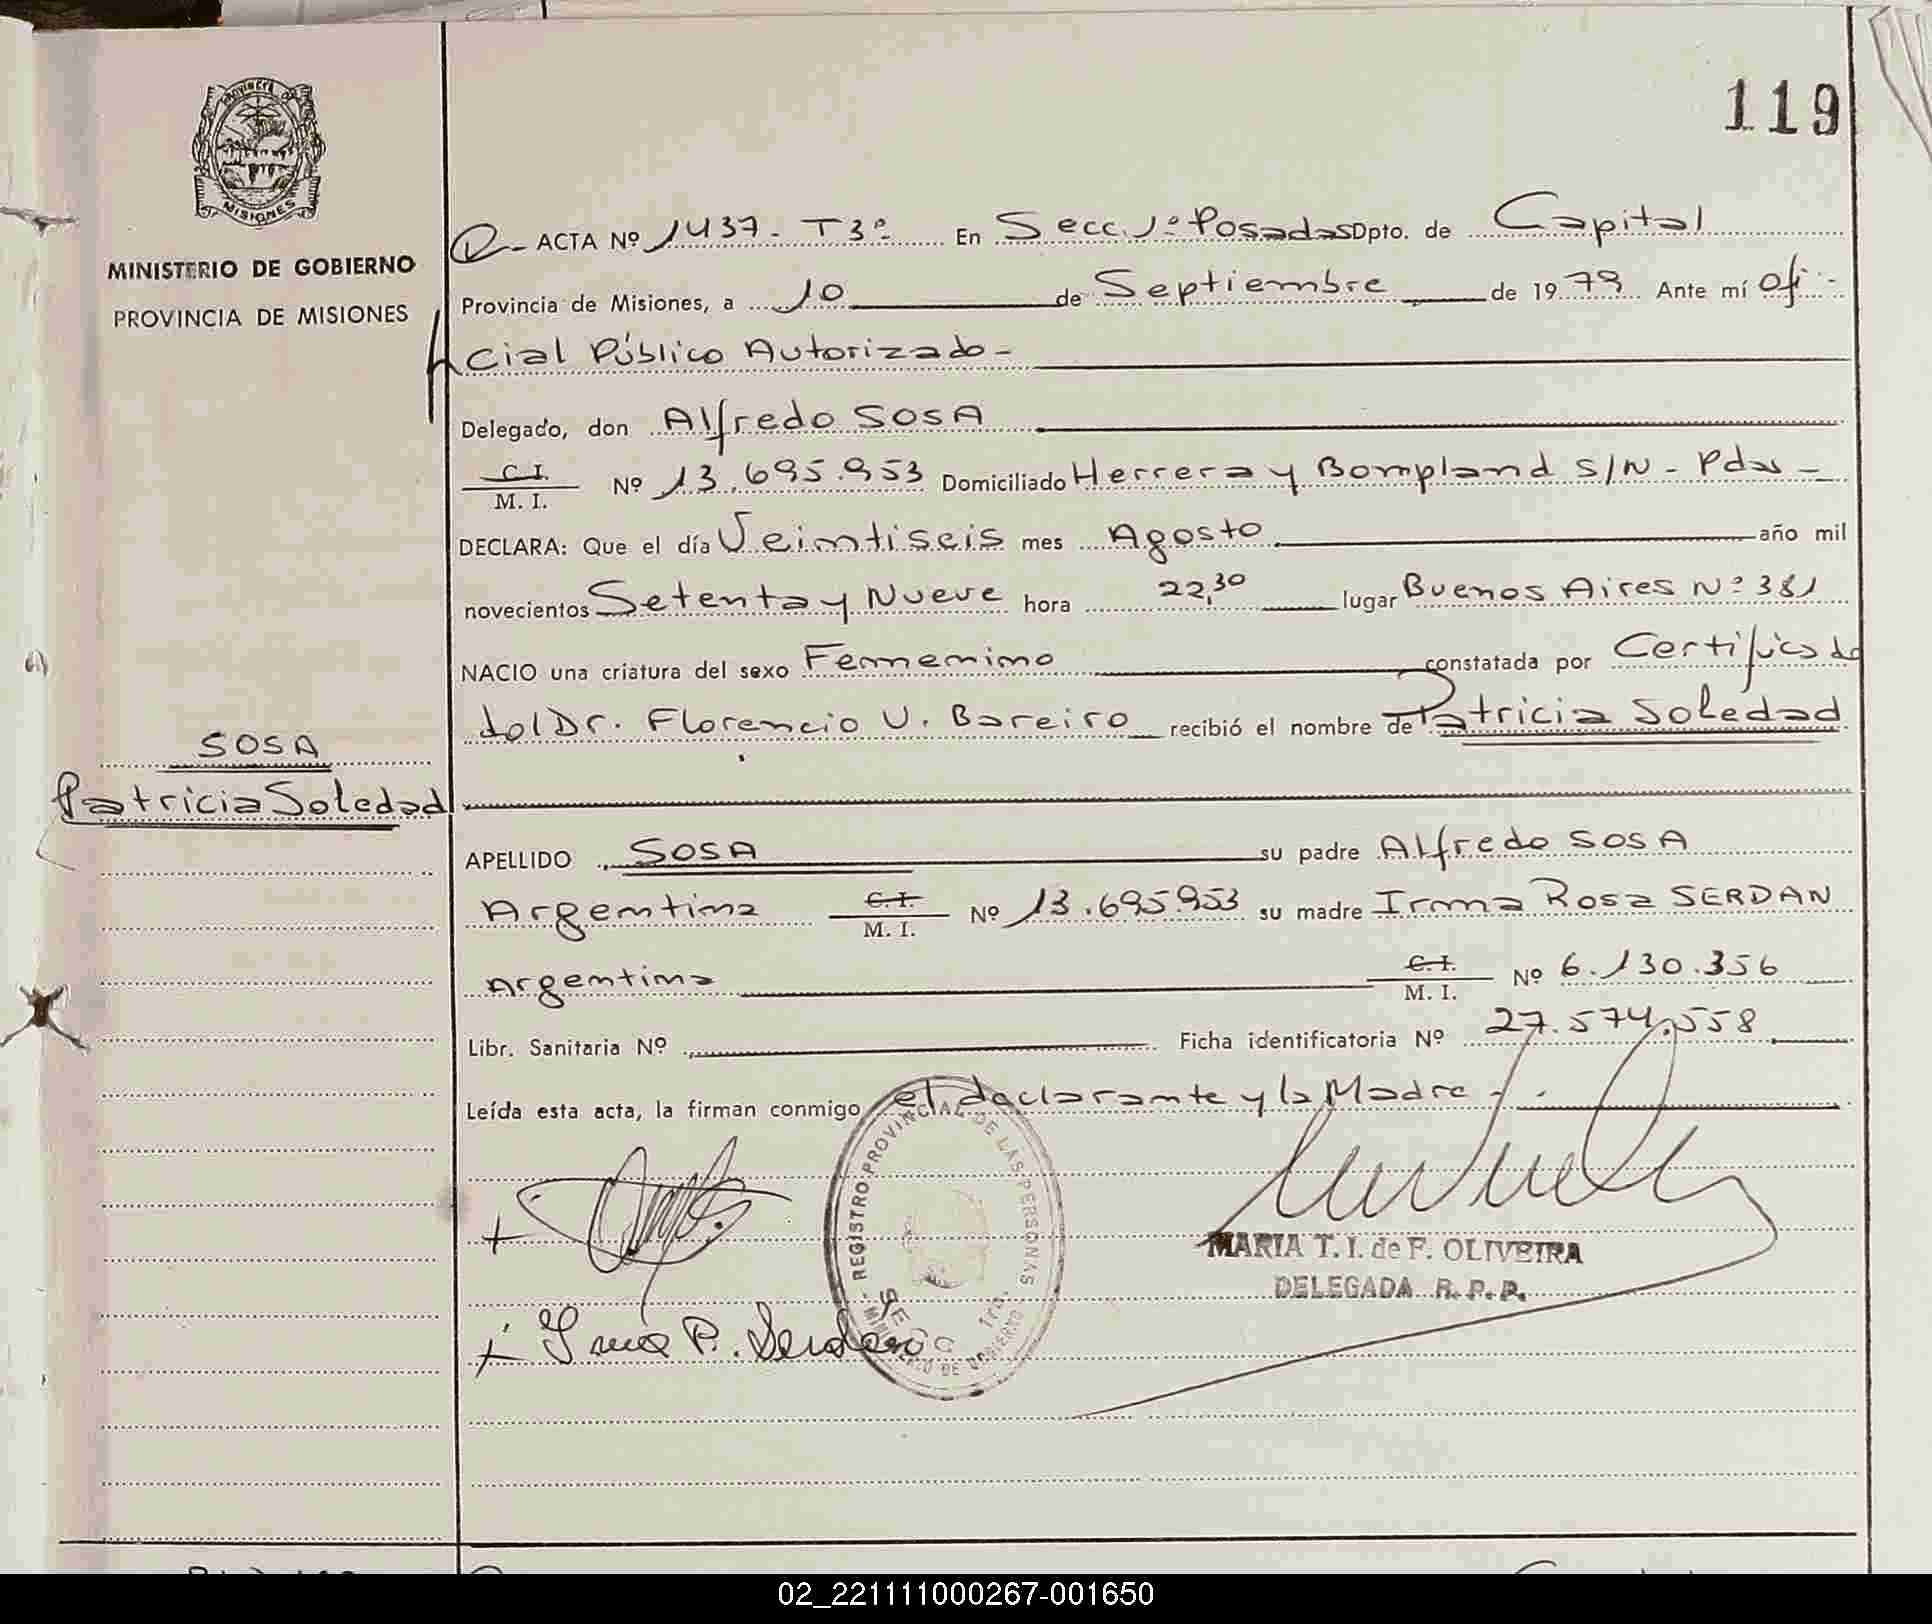 PROVINCIA DE
MISIONES
MINISTERIO DE GOBIERNO
PROVINCIA DE MISIONES
SOSA
Patricia Soledad
119
ACTA Nº 1437 - T3º En Secc 1º Posadas Dpto. de Capital
Provincia de Misiones, a 10 de Septiembre de 1979 Ante mí ofi-
cial Público Autorizado -
Delegado, don Alfredo SOSA
C.I. M. I. Nº 13.695.953 Domiciliado Herrera y Bompland S/N - Pdas -
DECLARA: Que el día Veintiseis mes Agosto año mil
novecientos Setenta y Nueve hora 22,30 lugar Buenos Aires Nº 381
NACIO una criatura del sexo Femenino constatada por Certificado
del Dr. Florencio V. Bareiro recibió el nombre de Patricia Soledad
APELLIDO SOSA su padre Alfredo SOSA
Argentina C.I. M. I. Nº 13.695.953 su madre Irma Rosa SERDAN
Argentina C.I. M. I. Nº 6.130.356
Libr. Sanitaria Nº Ficha identificatoria Nº 27.574.558
Leída esta acta, la firman conmigo el declarante y la Madre -
REGISTRO PROVINCIAL DE LAS PERSONAS
MINISTERIO DE GOBIERNO
MARIA T. I. de F. OLIVEIRA
DELEGADA R. P. P.
Irma R. Serdan
02_221111000267-001650